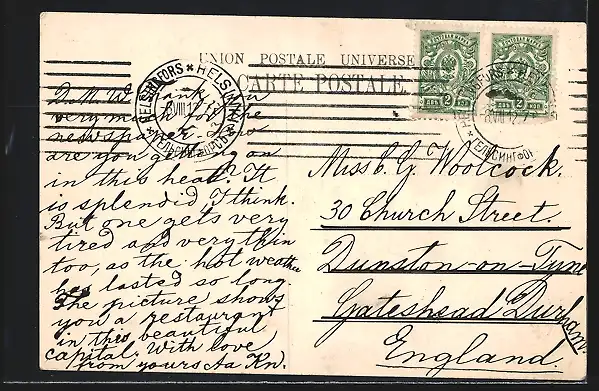 UNION POSTALE UNIVERSE
CARTE POSTALE.
HELSINGFORS * HELSINKI
ГЕЛЬСИНГФОРСЪ
ПОЧТОВАЯ МАРКА
2
ПОЧТОВАЯ МАРКА
2 КОП
VIII 12
D. M. W. Thank you
very much for the
newspaper. How
are you getting on
in this heat? It
is splendid I think.
But one gets very
tired and very thin
too, as the hot weather
has lasted so long.
The picture shows
you a restaurant
in this beautiful
capital. With love
from yours Aa Kn.
Miss C. G. Woolcock.
30 Church Street.
Dunston-on-Tyne
Gateshead Durham.
England.